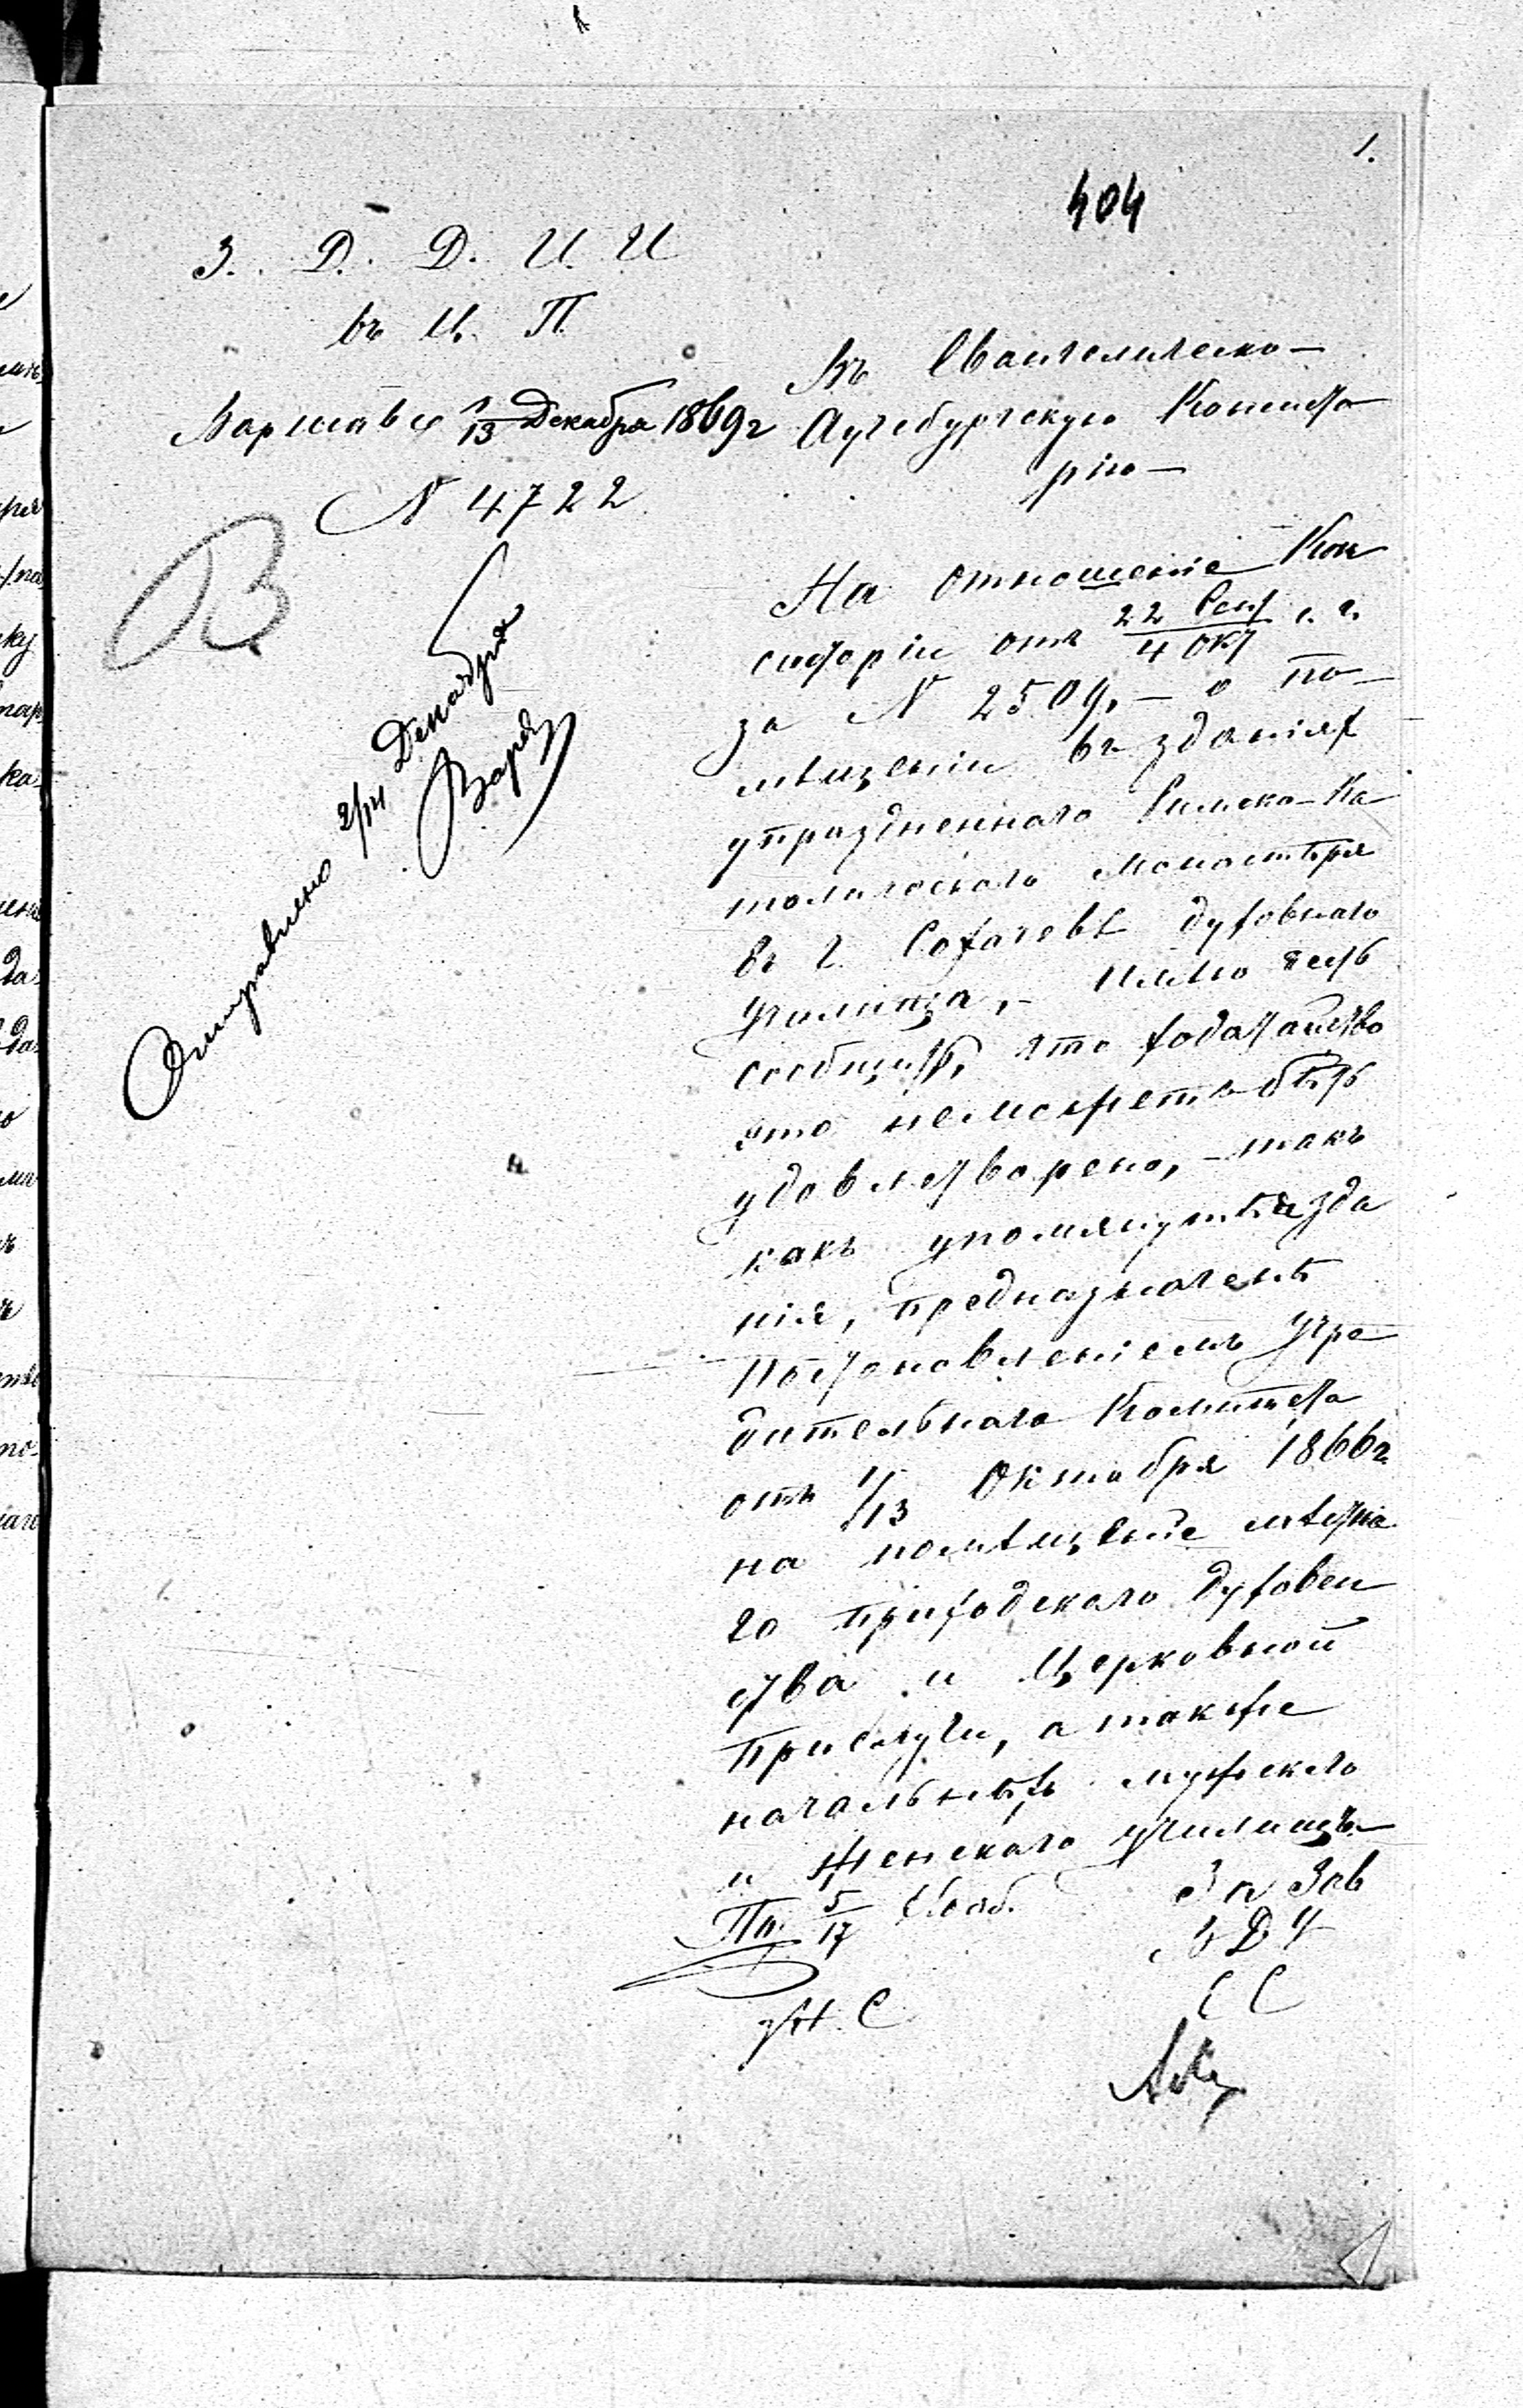 1.
404
З. Д. Д. И. И
въ Ц. П.
Варшава 1/13 Декабря 1869 г
N 4722
В
Отправлено 2/14 Декабря
Въ Евангелическо-
Аугсбургскую Консисто
рію
На отношеніе Кон
систоріи отъ 22 Сент/4 Окт с. г.
за N 2509, - о по-
мѣщеніи въ зданіях
упраздненнаго Римско-Ка
толическаго монастыря
въ г. Сохачевѣ духовнаго
училища, - имѣю честь
сообщить, что ходатайство
это неможетъ быть
удовлетворено, - такъ
какъ упомянутыя зда
нія, предназначены
Постановленіемъ Учре
дительнаго Комитета
отъ 1/13 Октября 1866 г.
на помѣщеніе мѣстна
го приходскаго духовен
ства и Церковной
прислуги, а также
начальныхъ мужскаго
и Женскаго училищъ.
5/17 Нояб.
За Зав
С С
Н. С